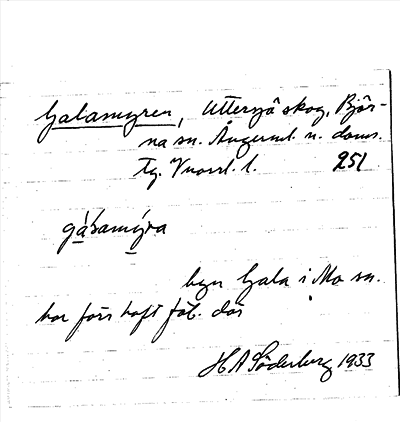 Galamyren, Uttersjö skog, Björ-
na sn. Ångerml. n. doms.
Tg. 251
gálamýra
byn Gala i Mo sn.
har förr haft fäb. där
H A Söderberg 1933